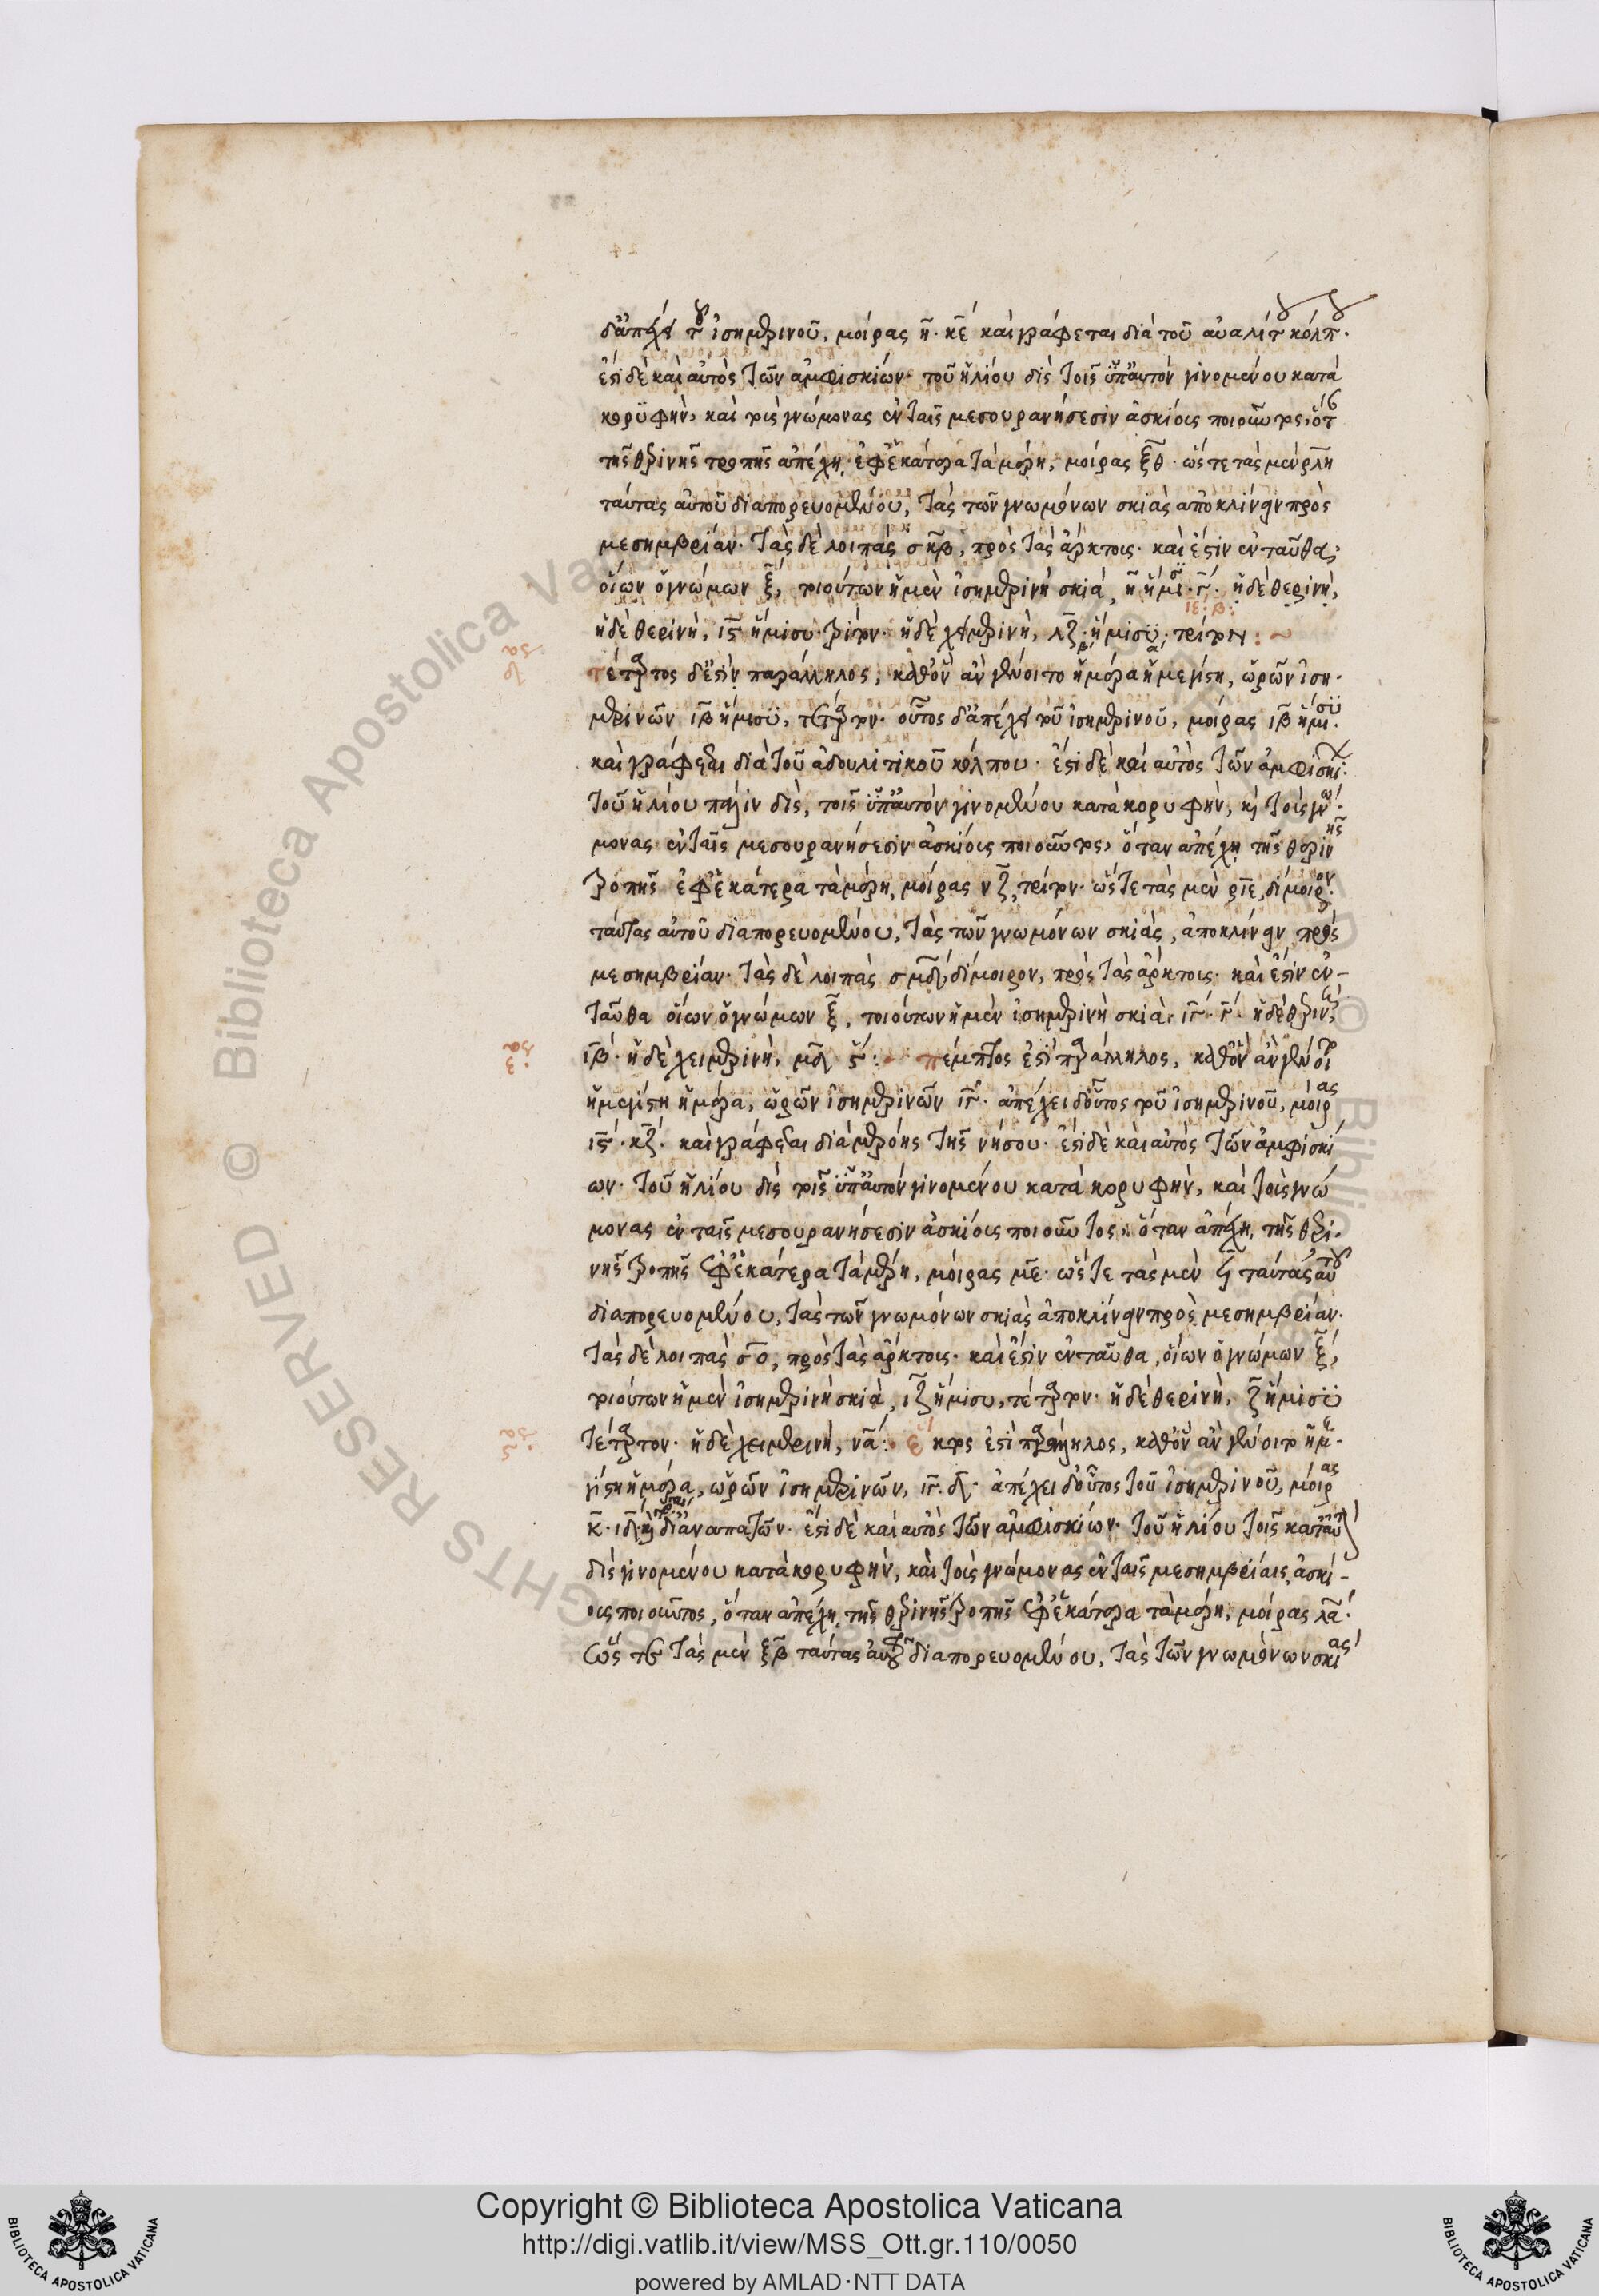 δ' ἀπέχει τοῦ ἰσημερινοῦ, μοίρας η· κε καὶ γράφεται διὰ τοῦ αὐαλίτου κόλπου·
ἔστι δὲ καὶ αὐτὸς τῶν ἀμφισκίων· τοῦ ἡλίου δὶς τοῖς ὑπ' αὐτὸν γινομένου κατὰ
κορυφὴν, καὶ τοὺς γνώμονας ἐν ταῖς μεσουρανήσεσιν ἀσκίους ποιοῦντος, ὅτε
τῆς θερινῆς τροπῆς ἀπέχῃ ἐφ' ἑκάτερα τὰ μέρη, μοίρας ξθ· ὥστε τὰς μὲν ρλη
ταύτας αὐτοῦ διαπορευομένου, τὰς τῶν γνωμόνων σκιὰς ἀποκλίνειν πρὸς
μεσημβρίαν· τὰς δὲ λοιπὰς σκβ, πρὸς τὰς ἄρκτους· καὶ ἔστιν ἐνταῦθα,
οἵων ὁ γνώμων ξ, τοιούτων ἡ μὲν ἰσημερινὴ σκιά, η ἥμισυ· γ· ἡ δὲ θερινὴ,
ἡ δὲ θερινὴ, ις ἥμισυ τρίτον· ἡ δὲ χειμερινὴ, λζ· ἥμισυ· τρίτον :~
τέταρτος δέ ἐστιν παράλληλος, καθ' ὃν ἂν γένοιτο ἡμέρα ἡ μεγίστη, ὡρῶν ἰση·
μερινῶν ιβ ἥμισυ, τέταρτον· οὗτος δ' ἀπέχει τοῦ ἰσημερινοῦ, μοίρας ιβ ἥμισυ·
καὶ γράφεται διὰ τοῦ ἀδουλιτικοῦ κόλπου· ἔστι δὲ καὶ αὐτὸς τῶν ἀμφισκί·
τοῦ ἡλίου πάλιν δὶς, τοῖς ὑπ' αὐτὸν γινομένου κατὰ κορυφὴν, καὶ τοὺς γνώ·
μονας ἐν ταῖς μεσουρανήσεσιν ἀσκίους ποιοῦντος, ὅταν ἀπέχῃ τῆς θερινῆς
τροπῆς ἐφ' ἑκάτερα τὰ μέρη, μοίρας νζ, τρίτον· ὥστε τὰς μὲν ριε, δίμοιρον·
ταύτας αὐτοῦ διαπορευομένου, τὰς τῶν γνωμόνων σκιὰς, ἀποκλίνειν πρὸς
μεσημβρίαν· τὰς δὲ λοιπὰς σμδ, δίμοιρον, πρὸς τὰς ἄρκτους· καὶ ἔστιν ἐν-
ταῦθα οἵων ὁ γνώμων ξ, τοιούτων ἡ μὲν ἰσημερινὴ σκιὰ, ιγ· γ· ἡ δὲ θερινὴ,
ιβ· ἡ δὲ χειμερινὴ, μδ ς : πέμπτος ἐστὶ παράλληλος, καθ' ὃν ἂν γένοιτο
ἡ μεγίστη ἡμέρα, ὡρῶν ἰσημερινῶν ιγ· ἀπέχει δ' οὗτος τοῦ ἰσημερινοῦ, μοίρας
ις· κζ· καὶ γράφεται διὰ μερόης τῆς νήσου· ἔστι δὲ καὶ αὐτὸς τῶν ἀμφισκί
ων· τοῦ ἡλίου δὶς τοῖς ὑπ' αὐτὸν γινομένου κατὰ κορυφὴν, καὶ τοὺς γνώ
μονας ἐν ταῖς μεσουρανήσεσιν ἀσκίους ποιοῦντος, ὅταν ἀπέχῃ, τῆς θερι·
νῆς τροπῆς ἐφ' ἑκάτερα τὰ μέρη, μοίρας με· ὥστε τὰς μὲν ϟ ταύτας αὐτοῦ
διαπορευομένου, τὰς τῶν γνωμόνων σκιὰς ἀποκλίνειν πρὸς μεσημβρίαν·
τὰς δὲ λοιπὰς σο, πρὸς τὰς ἄρκτους· καὶ ἔστιν ἐνταῦθα, οἵων ὁ γνώμων ξ,
τοιούτων ἡ μὲν ἰσημερινὴ σκιὰ, ιζ ἥμισυ, τέταρτον· ἡ δὲ θερινὴ, ζ ἥμισυ
τέταρτον· ἡ δὲ χειμερινὴ, να : ἕκτος ἐστὶ παράλληλος, καθ' ὃν ἂν γένοιτο ἡ με-
γίστη ἡμέρα, ὡρῶν ἰσημερινῶν, ιγ· δ· ἀπέχει δ' οὗτος τοῦ ἰσημερινοῦ, μοίρας
κ· ιδ· καὶ γράφεται διὰ ναπατῶν· ἔστι δὲ καὶ αὐτὸς τῶν ἀμφισκίων· τοῦ ἡλίου τοῖς κατ' αὐτὸν
δὶς γινομένου κατὰ κορυφὴν, καὶ τοὺς γνώμονας ἐν ταῖς μεσημβρίαις, ἀσκί-
ους ποιοῦντος, ὅταν ἀπέχῃ τῆς θερινῆς τροπῆς ἐφ' ἑκάτερα τὰ μέρη, μοίρας λα·
ὥστε τὰς μὲν ξβ ταύτας αὐτοῦ διαπορευομένου, τὰς τῶν γνωμόνων σκιὰς
Copyright © Biblioteca Apostolica Vaticana
http://digi.vatlib.it/view/MSS_Ott.gr.110/0050
powered by AMLAD·NTT DATA